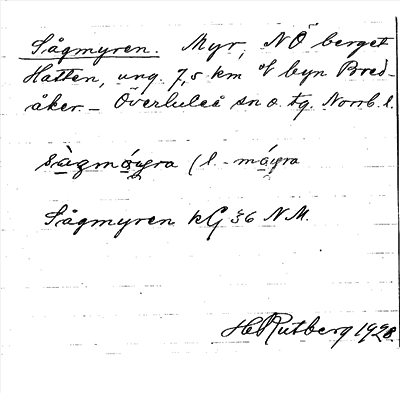 Sågmyren. Myr, NÖ berget
Hatten, ung. 7,5 km &nbsp;byn Bred-
åker. – Överluleå sn o. tg. Norrb. l.
sàgmó̤yra (l. -mó̤yra
Sågmyren kG 36 N.M.
H Rutberg 1928.